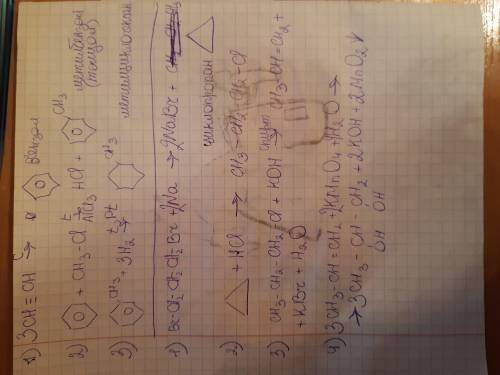 1) 3CH ≡ CH → бензол
2) + CH3-Cl t→ AlCl3 HCl + CH3 метилбензол
(толуол)
3) CH3 + 3H2 t, Pt→ CH3
1) Br-CH2-CH2-CH2-Br + 2Na → 2NaBr +
циклопропан
2) + HCl → CH3-CH2-CH2-Cl
3) CH3-CH2-CH2-Cl + KOH спирт→ CH3-CH=CH2 +
+ KBr + H2O
4) 3CH3-CH=CH2 + 2KMnO4 + 4H2O →
→ 3CH3-CH-CH2 + 2KOH + 2MnO2↓
OH OH